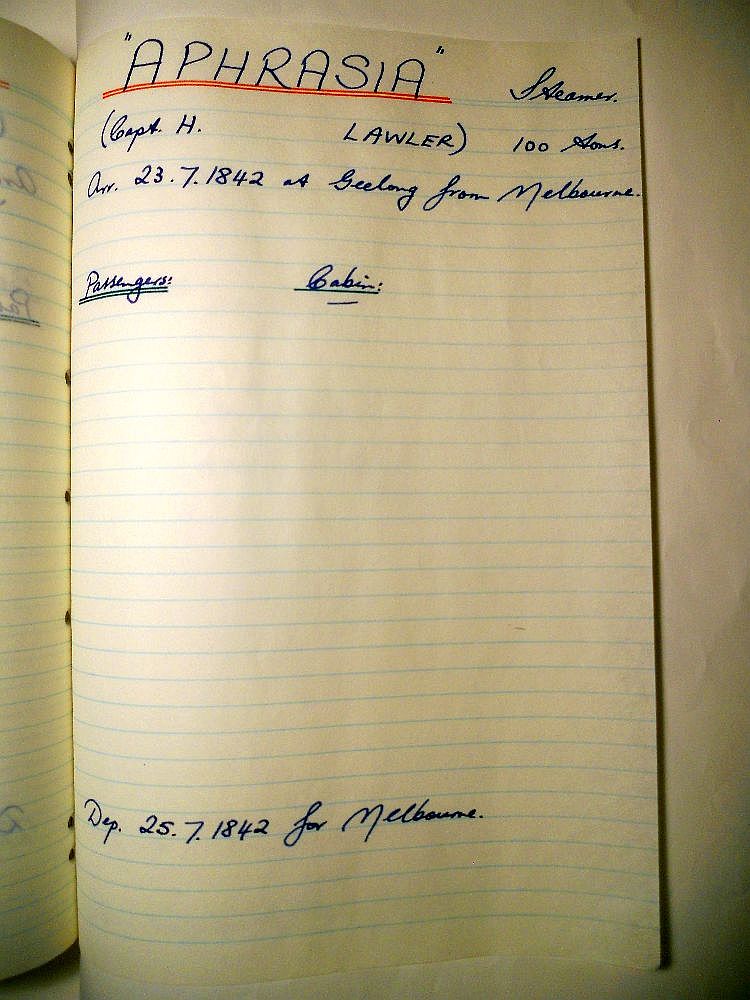 "APHRASIA" Steamer.
(Capt. H. LAWLER) 100 tons.
Arr. 23.7.1842 at Geelong from Melbourne.
Passengers: Cabin:
—
Dep. 25.7.1842 for Melbourne.